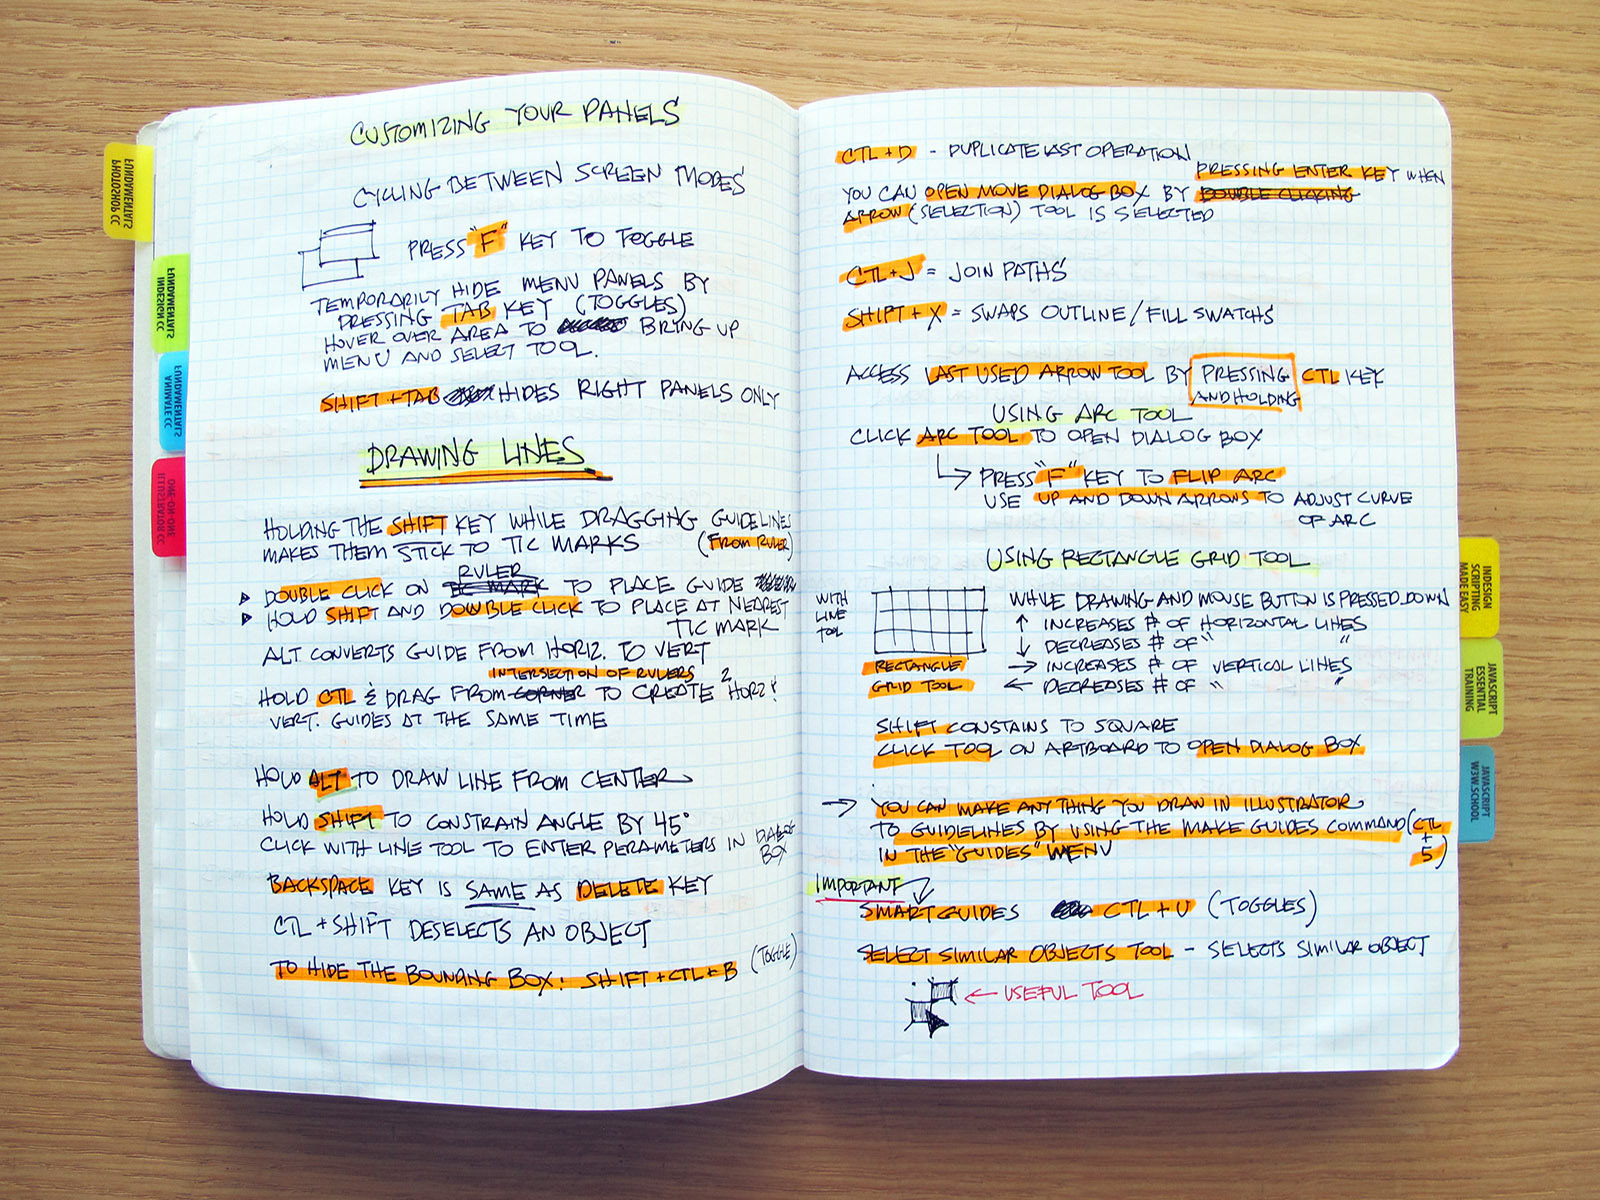 CUSTOMIZING YOUR PANELS
CYCLING BETWEEN SCREEN MODES
PRESS "F" KEY TO TOGGLE
TEMPORARILY HIDE MENU PANELS BY
PRESSING TAB KEY (TOGGLES)
HOVER OVER AREA TO BRING UP
MENU AND SELECT TOOL.
SHIFT + TAB HIDES RIGHT PANELS ONLY
DRAWING LINES
HOLDING THE SHIFT KEY WHILE DRAGGING GUIDELINES
MAKES THEM STICK TO TIC MARKS (FROM RULER)
RULER
DOUBLE CLICK ON TIC MARK TO PLACE GUIDE
HOLD SHIFT AND DOWBLE CLICK TO PLACE AT NEAREST
TIC MARK
ALT CONVERTS GUIDE FROM HORIZ. TO VERT
INTERSECTION OF RULERS 2
HOLD CTL & DRAG FROM CORNER TO CREATE HORZ &
VERT. GUIDES AT THE SAME TIME
HOLD ALT TO DRAW LINE FROM CENTER
HOLD SHIFT TO CONSTRAIN ANGLE BY 45°
CLICK WITH LINE TOOL TO ENTER PERAMETERS IN DIALOG
BOX
BACKSPACE KEY IS SAME AS DELETE KEY
CTL + SHIFT DESELECTS AN OBJECT
TO HIDE THE BOUNDING BOX: SHIFT + CTL + B (TOGGLE)
CTL + D - DUPLICATE LAST OPERATION
PRESSING ENTER KEY WHEN
YOU CAN OPEN MOVE DIALOG BOX BY DOUBLE CLICKING
ARROW (SELECTION) TOOL IS SELECTED
CTL + J = JOIN PATHS
SHIFT + X = SWAPS OUTLINE / FILL SWATCHS
ACCESS LAST USED ARROW TOOL BY PRESSING CTL KEY
AND HOLDING
USING ARC TOOL
CLICK ARC TOOL TO OPEN DIALOG BOX
→ PRESS "F" KEY TO FLIP ARC
USE UP AND DOWN ARROWS TO ADJUST CURVE
OF ARC
USING RECTANGLE GRID TOOL
WITH
LINE
TOOL
RECTANGLE
GRID TOOL
WHILE DRAWING AND MOUSE BUTTON IS PRESSED DOWN
↑ INCREASES # OF HORIZONTAL LINES
↓ DECREASES # OF " "
→ INCREASES # OF VERTICAL LINES
← DECREASES # OF " "
SHIFT CONSTAINS TO SQUARE
CLICK TOOL ON ARTBOARD TO OPEN DIALOG BOX
→ YOU CAN MAKE ANY THING YOU DRAW IN ILLUSTRATOR
TO GUIDELINES BY USING THE MAKE GUIDES COMMAND (CTL
+
IN THE "GUIDES" MENU 5)
IMPORTANT
SMART GUIDES CTL + U (TOGGLES)
SELECT SIMILAR OBJECTS TOOL - SELECTS SIMILAR OBJECT
← USEFUL TOOL
PHOTOSHOP CC
FUNDAMENTALS
INDESIGN CC
FUNDAMENTALS
ANIMATE CC
FUNDAMENTALS
ILLUSTRATOR CC
ONE-ON-ONE
INDESIGN
SCRIPTING
MADE EASY
JAVASCRIPT
ESSENTIAL
TRAINING
JAVASCRIPT
W3W.SCHOOL